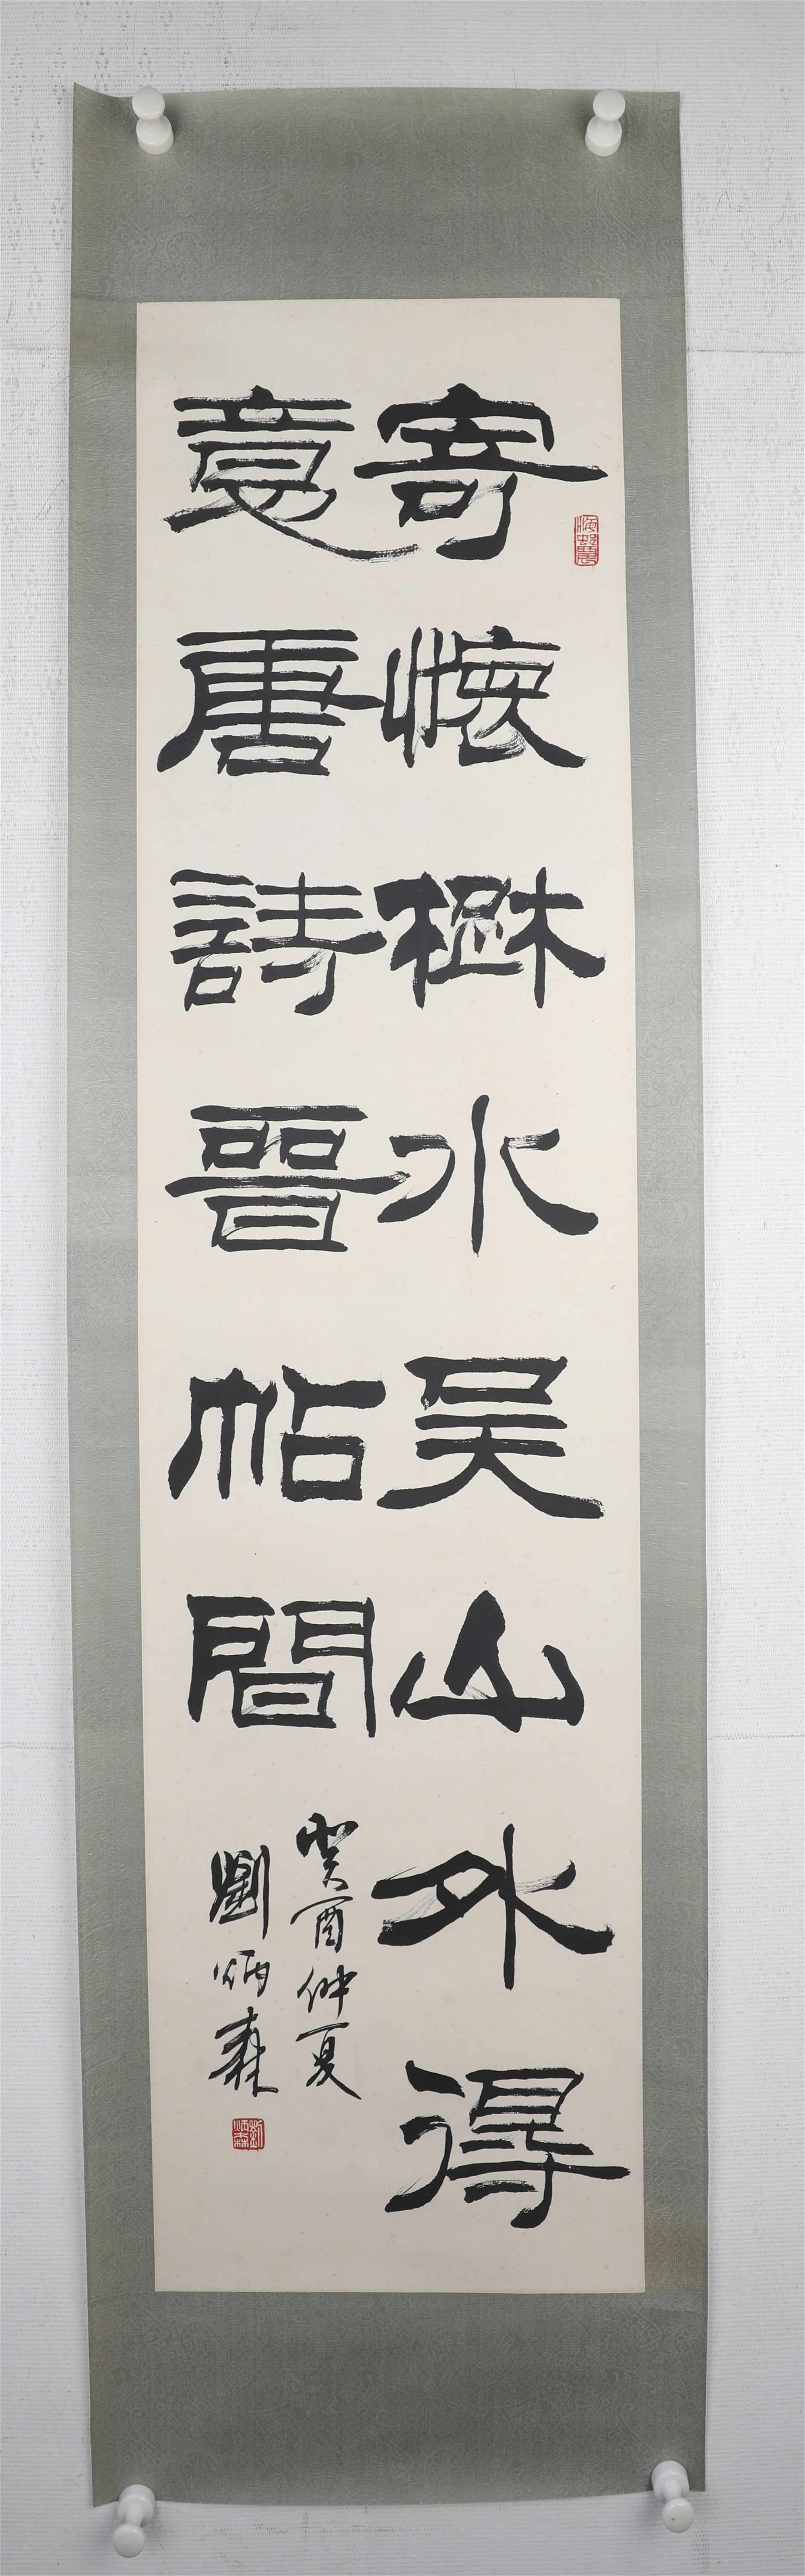 寄懷楚水吴山外得
意唐詩晉帖間
癸酉仲夏
劉炳森
劉炳森